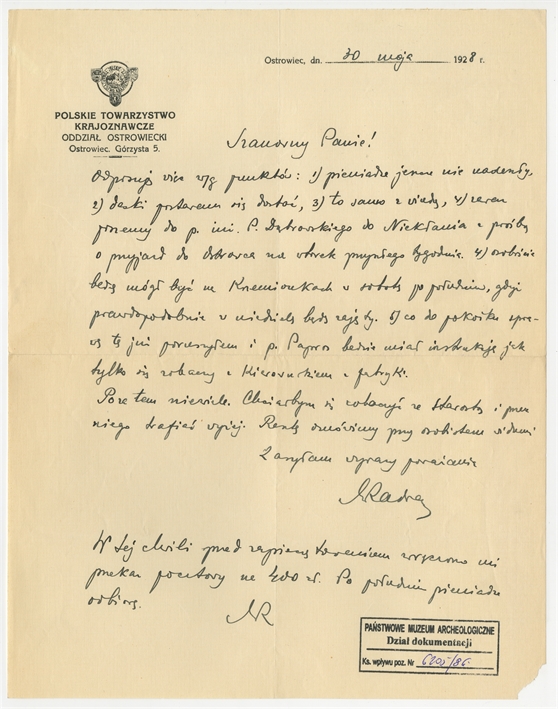 Ostrowiec, dn. 30 maja 1928 r.
POLSKIE TOWARZYSTWO
KRAJOZNAWCZE
ODDZIAŁ OSTROWIECKI
Ostrowiec, Górzysta 5.
Szanowny Panie!
Odpisuję więc wg punktów: 1) pieniądze jeszcze nie nadeszły,
2) deski postaram się dostać, 3) to samo z windą, 4) zaraz
piszemy do p. inż. P. Dąbrowskiego do Niekłania z prośbą
o przyjazd do Ostrowca na wtorek przyszłego tygodnia. 4) osobiście
będę mógł być na Krzemionkach w sobotę po południu, gdyż
prawdopodobnie w niedzielę będę zajęty. 5) co do pokoiku spra-
wę tę już poruszyłem i p. Papros będzie miał instrukcję jak
tylko się zobaczy z Kierownikiem z fabryki.
Poza tem niewiele. Chciałbym się zobaczyć ze Starostą i przez
niego trafiać wyżej. Resztę omówimy przy osobistem widzeniu
Zasyłam wyrazy poważania
MRadwan
W tej chwili przed zapisaniem wręczono mi
przekaz pocztowy na 400 zł. Po południu pieniądze
odbiorę.
MR
PAŃSTWOWE MUZEUM ARCHEOLOGICZNE
Dział dokumentacji
Ks. wpływu poz. Nr